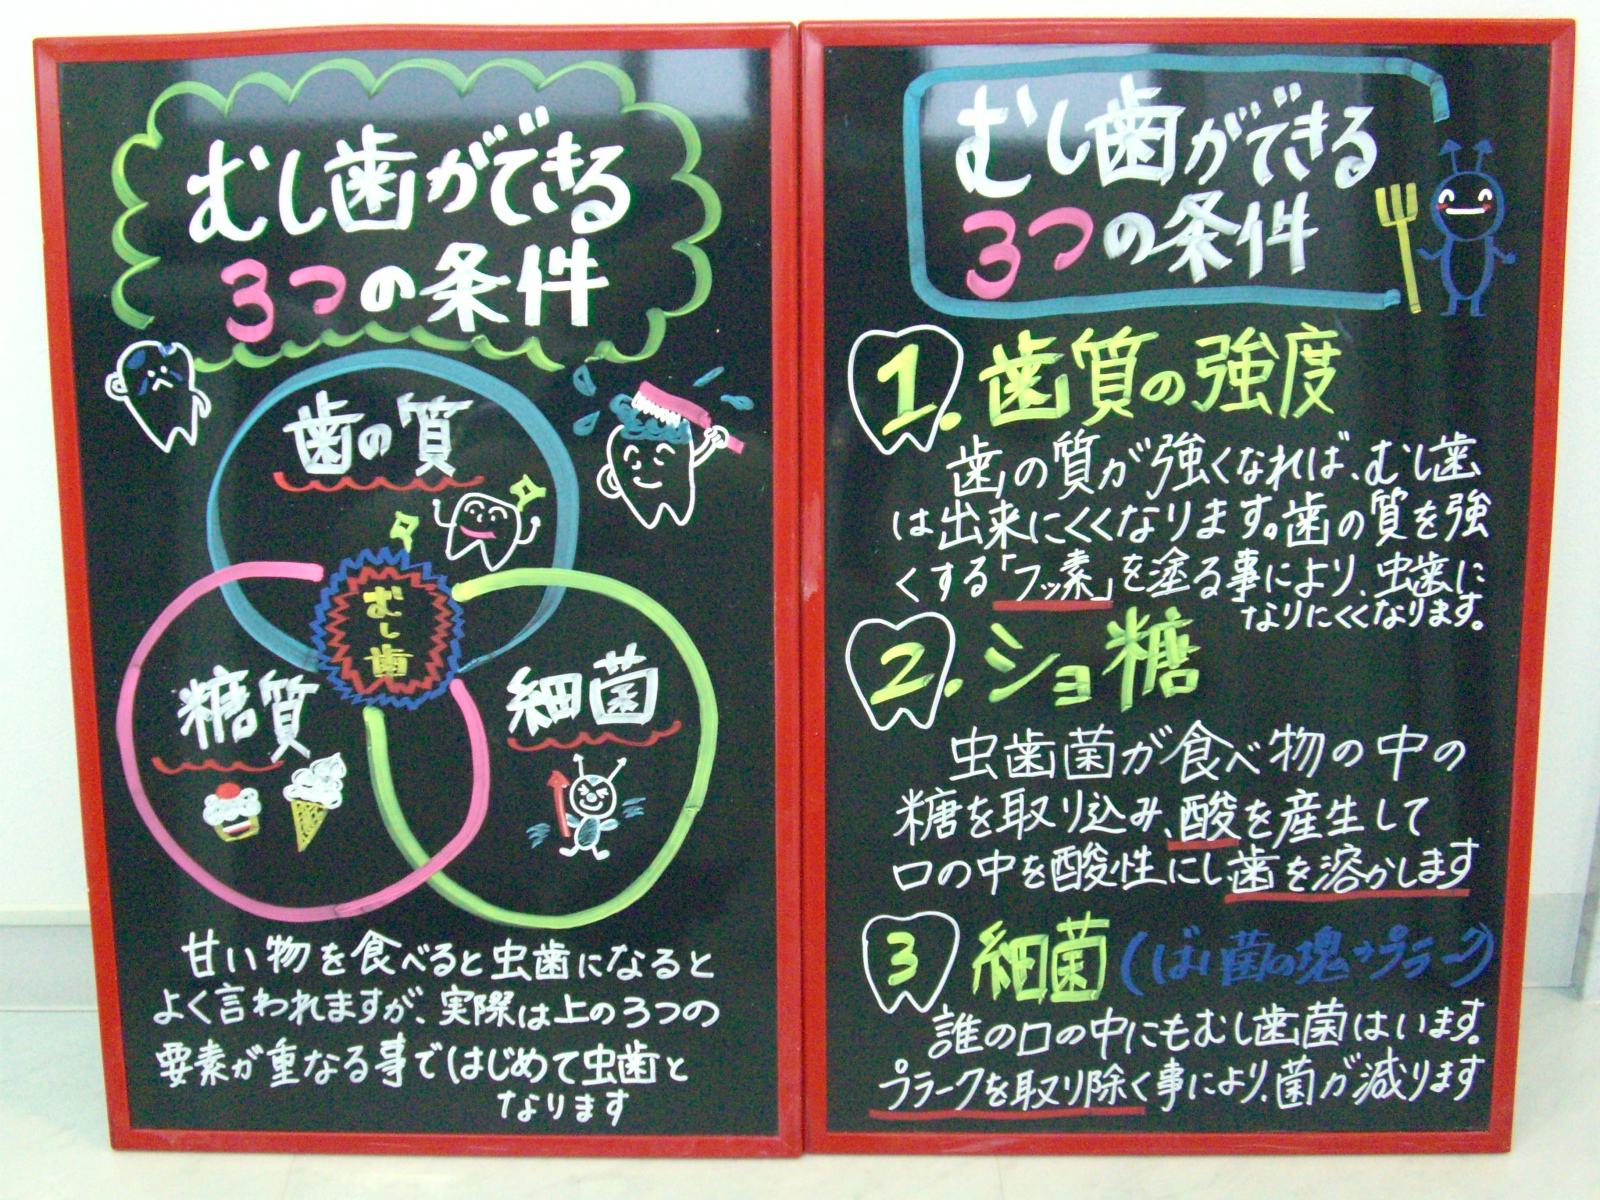 むし歯ができる
3つの条件
歯の質
むし歯
糖質
細菌
甘い物を食べると虫歯になると
よく言われますが、実際は上の3つの
要素が重なる事ではじめて虫歯と
なります
むし歯ができる
3つの条件
1. 歯質の強度
歯の質が強くなれば、むし歯
は出来にくくなります。歯の質を強
くする「フッ素」を塗る事により、虫歯に
なりにくくなります。
2. ショ糖
虫歯菌が食べ物の中の
糖を取り込み、酸を産生して
口の中を酸性にし歯を溶かします
3 細菌(ばい菌の塊→プラーク)
誰の口の中にもむし歯菌はいます。
プラークを取り除く事により、菌が減ります